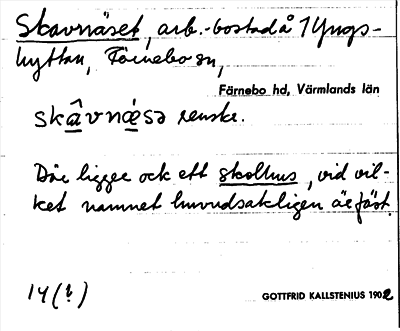 Skavnäset, arb.-bostad å Yngs-
hyttan, Färnebo sn,
Färnebo hd, Värmlands län
skâvnǽsə renske.
Där ligger ock ett skolhus, vid vil-
ket namnet huvudsakligen är fäst.
14(?)
GOTTFRID KALLSTENIUS 1902